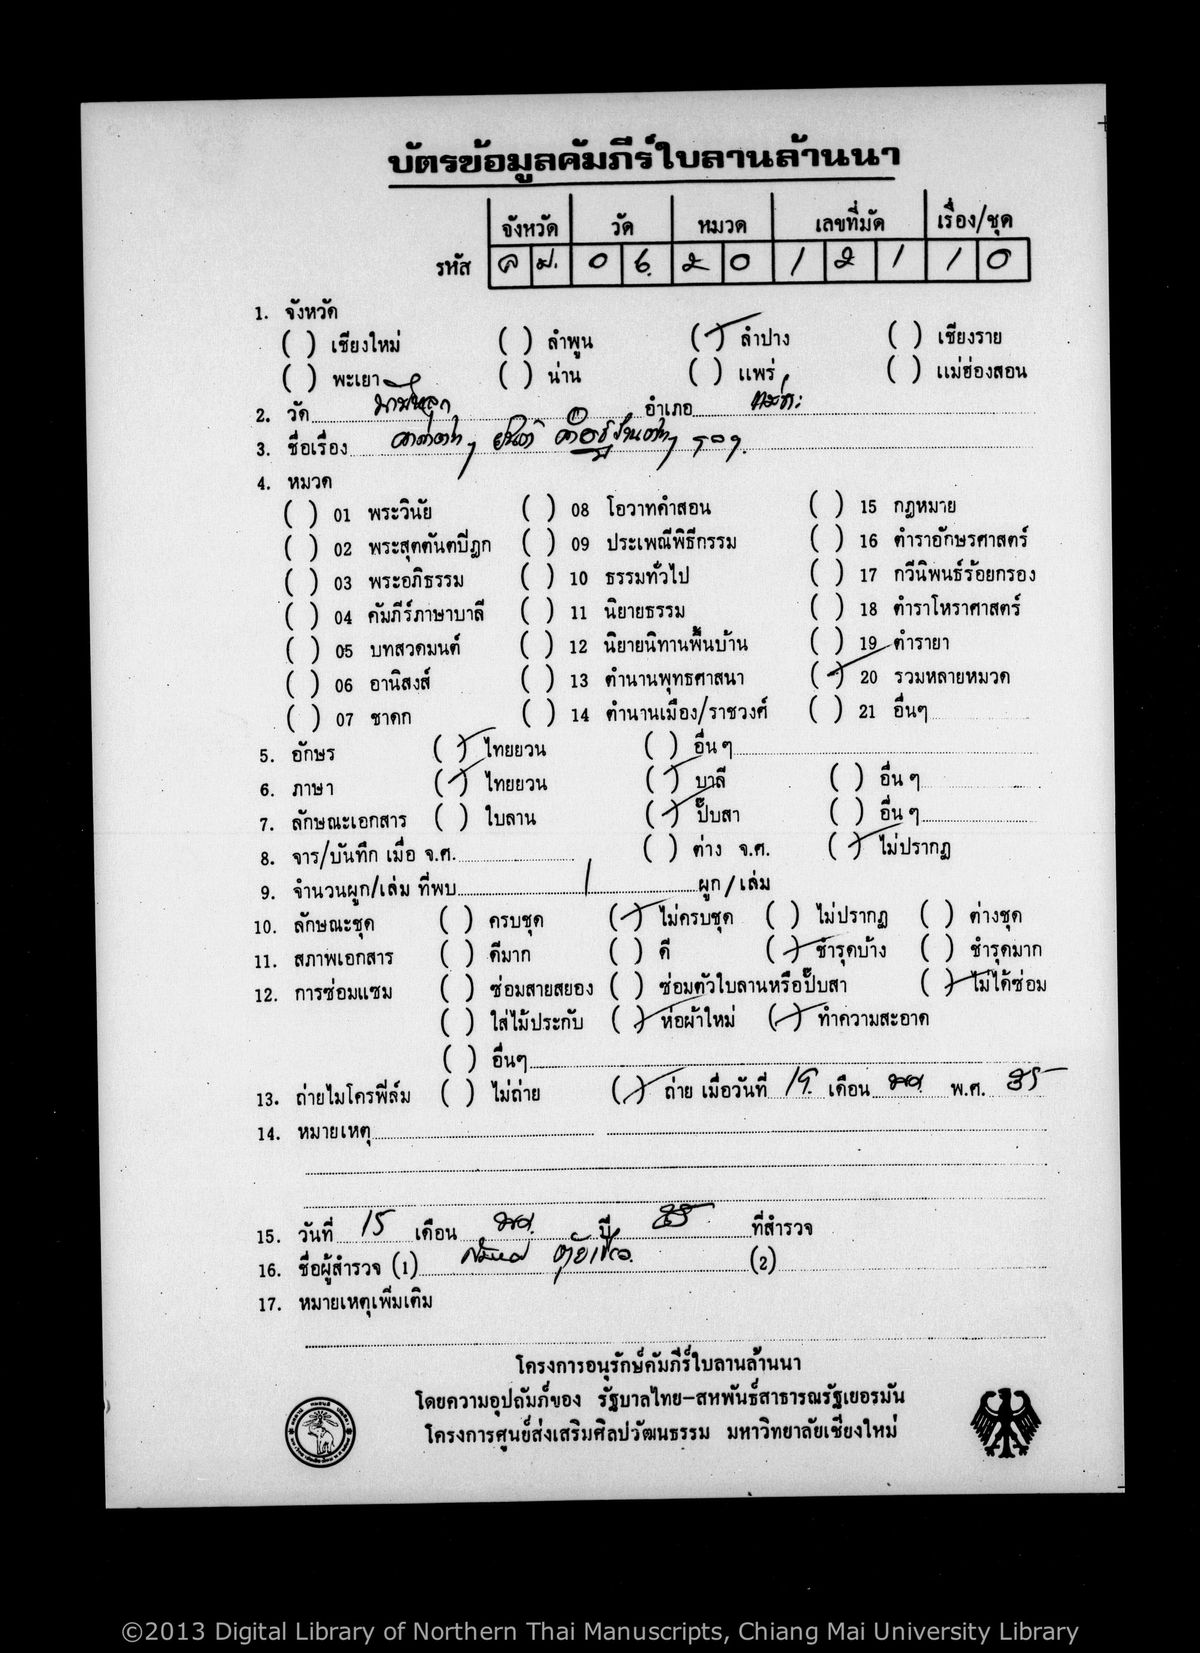 บัตรข้อมูลคัมภีร์ใบลานล้านนา
จังหวัด วัด หมวด เลขที่มัด เรื่อง/ชุด
รหัส ล ป. 0 6. 2 0 1 2 1 1 0
1. จังหวัด
( ) เชียงใหม่ ( ) ลำพูน (✓) ลำปาง ( ) เชียงราย
( ) พะเยา ( ) น่าน ( ) แพร่ ( ) แม่ฮ่องสอน
2. วัด อำเภอ
3. ชื่อเรื่อง
4. หมวด
( ) 01 พระวินัย ( ) 08 โอวาทคำสอน ( ) 15 กฎหมาย
( ) 02 พระสุตตันตปิฎก ( ) 09 ประเพณีพิธีกรรม ( ) 16 ตำราอักษรศาสตร์
( ) 03 พระอภิธรรม ( ) 10 ธรรมทั่วไป ( ) 17 กวีนิพนธ์ร้อยกรอง
( ) 04 คัมภีร์ภาษาบาลี ( ) 11 นิยายธรรม ( ) 18 ตำราโหราศาสตร์
( ) 05 บทสวดมนต์ ( ) 12 นิยายนิทานพื้นบ้าน ( ) 19 ตำรายา
( ) 06 อานิสงส์ ( ) 13 ตำนานพุทธศาสนา (✓) 20 รวมหลายหมวด
( ) 07 ชาดก ( ) 14 ตำนานเมือง/ราชวงศ์ ( ) 21 อื่นๆ
5. อักษร (✓) ไทยยวน ( ) อื่น ๆ
6. ภาษา (✓) ไทยยวน (✓) บาลี ( ) อื่น ๆ
7. ลักษณะเอกสาร ( ) ใบลาน (✓) ปั๊บสา ( ) อื่น ๆ
8. จาร/บันทึก เมื่อ จ.ศ. ( ) ต่าง จ.ศ. (✓) ไม่ปรากฏ
9. จำนวนผูก/เล่ม ที่พบ 1 ผูก/เล่ม
10. ลักษณะชุด ( ) ครบชุด (✓) ไม่ครบชุด ( ) ไม่ปรากฏ ( ) ต่างชุด
11. สภาพเอกสาร ( ) ดีมาก ( ) ดี (✓) ชำรุดบ้าง ( ) ชำรุดมาก
12. การซ่อมแซม ( ) ซ่อมสายสยอง ( ) ซ่อมตัวใบลานหรือปั๊บสา (✓) ไม่ได้ซ่อม
( ) ใส่ไม้ประกับ (✓) ห่อผ้าใหม่ (✓) ทำความสะอาด
( ) อื่นๆ
13. ถ่ายไมโครฟิล์ม ( ) ไม่ถ่าย (✓) ถ่าย เมื่อวันที่ 19. เดือน พ.ศ. 35
14. หมายเหตุ
15. วันที่ 15 เดือน ปี 35 ที่สำรวจ
16. ชื่อผู้สำรวจ (1) (2)
17. หมายเหตุเพิ่มเติม
โครงการอนุรักษ์คัมภีร์ใบลานล้านนา
โดยความอุปถัมภ์ของ รัฐบาลไทย-สหพันธ์สาธารณรัฐเยอรมัน
โครงการศูนย์ส่งเสริมศิลปวัฒนธรรม มหาวิทยาลัยเชียงใหม่
©2013 Digital Library of Northern Thai Manuscripts, Chiang Mai University Library